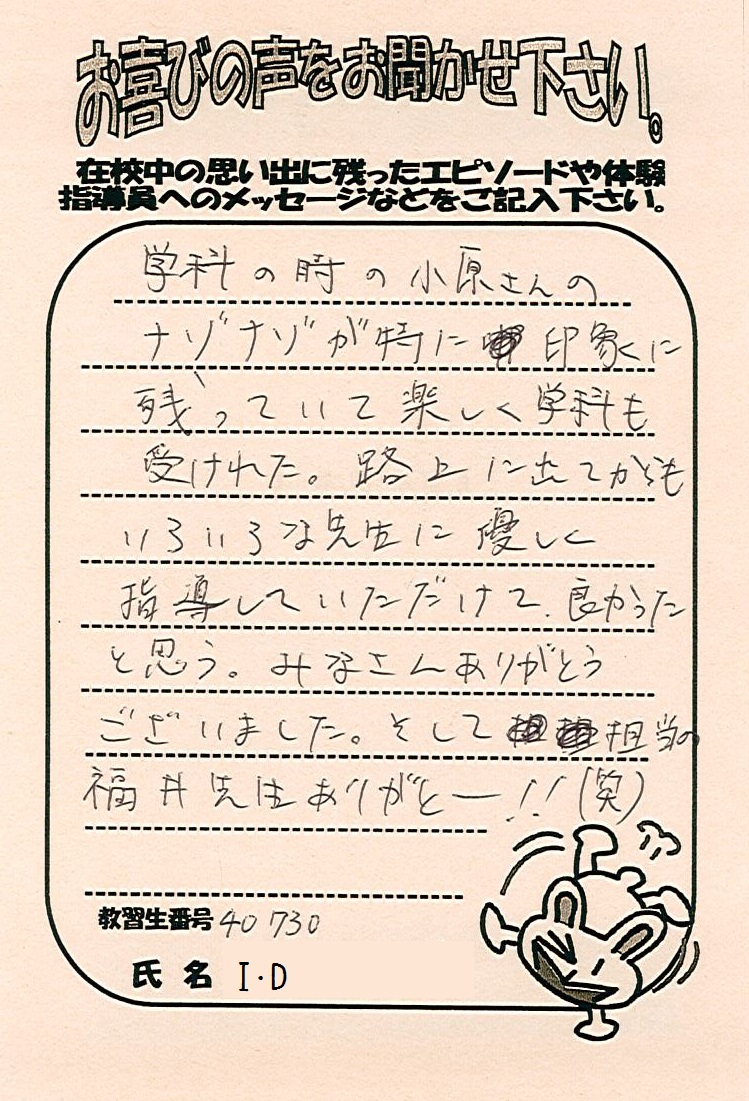 お喜びの声をお聞かせ下さい。
在校中の思い出に残ったエピソードや体験
指導員へのメッセージなどをご記入下さい。
学科の時の小原さんの
ナゾナゾが特に印象に
残っていて楽しく学科も
受けれた。路上に出てからも
いろいろな先生に優しく
指導していただけて、良かった
と思う。みなさんありがとう
ございました。そして担当の
福井先生ありがとー!!(笑)
教習生番号 40730
氏名 I・D